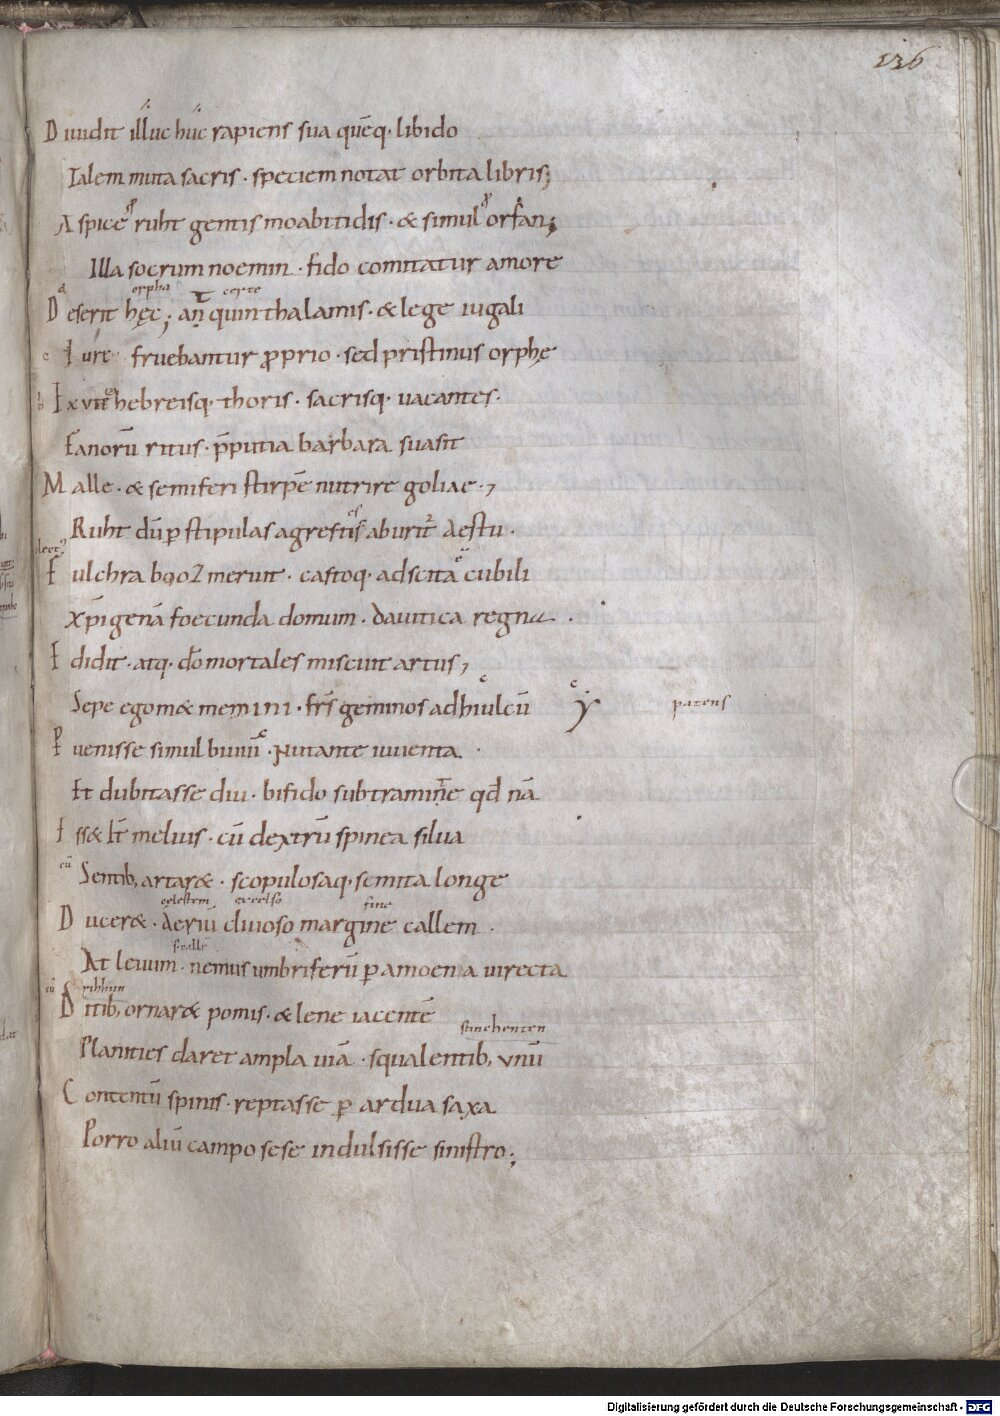 136
Diuidit illuc huc rapiens sua quēq· libido
Talem muta sacris · speciem notat orbita libris;
Aspice ruht gentis moabitidis · & simul orfan;
Illa socrum noemin · fido comitatur amore
orpha certe
Deserit hęc; an̄ quin thalamis · & lege iugali
Iure fruebantur ꝓprio · sed pristinus orphę
hebreisq· thoris · sacrisq· uacantes·
Fanorū ritus · p̄putia barbara suasit
Malle · & semiferi stirpē nutrire goliae·,
Ruht dū ꝑ stipulas agrestis aburit᷒ Aestu·
Pulchra booz meruit · castoq· adscita cubili
Xp̄igenā foecunda domum · dauitica regna·
Edidit · atq· do mortales miscuit artus,
Sepe egom& memini · frs̄ geminos ad hiulcū Y patens
Puenisse simul biuiū · nutante iuuenta ·
Et dubitasse diu · bifido sub tramine qd̄ nā
Iss& melius · cū dextrū spinea silua
cū Sentib; artar& · scopulosaq· semita longe
celestem excelso fine
Ducer& · Aeriū cliuoso margine callem ·
At leuum · nemus umbriferū ꝑ amoena uirecta
cū
Ditib; ornar& pomis · & lene iacentē
stinchenten
Planities daret ampla uiā · squalentib; vnū
Contentū spinis · reptasse ꝑ ardua saxa
Porro aliū campo sese indulsisse sinistro;
Digitalisierung gefördert durch die Deutsche Forschungsgemeinschaft - DFG